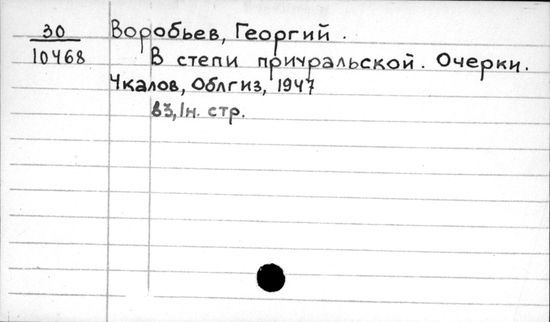 30
10468
Воробьев, Георгий.
В степи приуральской. Очерки.
Чкалов, Облгиз, 1947
83, 1н. стр.